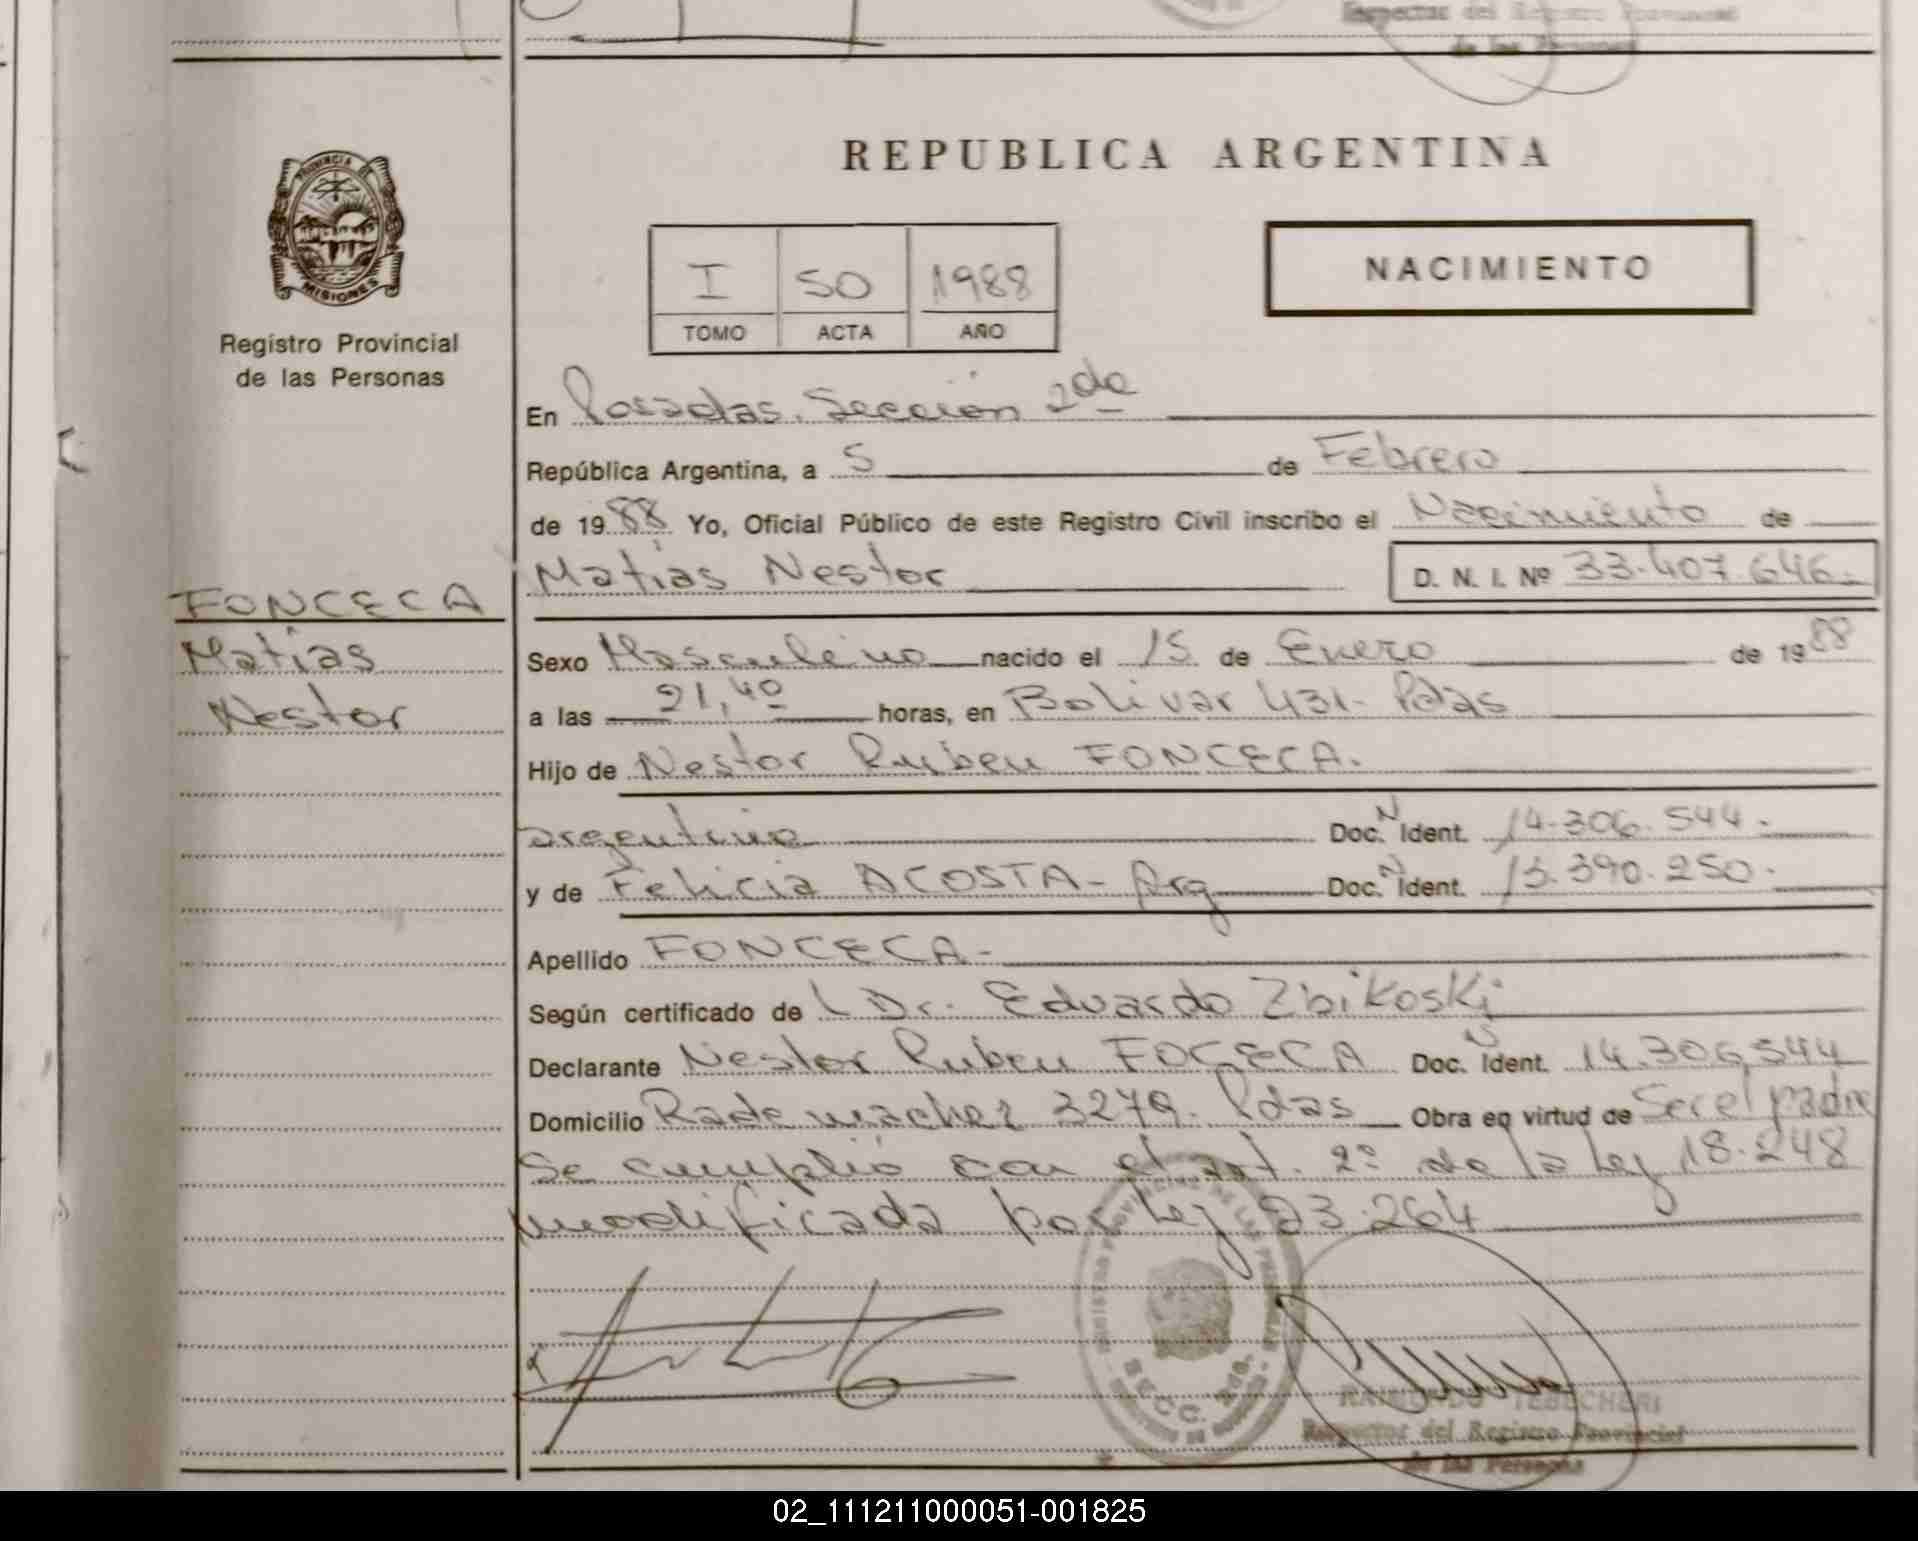 Inspector del Registro Provincial
de las Personas
PROVINCIA DE
MISIONES
Registro Provincial
de las Personas
REPUBLICA ARGENTINA
I 50 1988
TOMO ACTA AÑO
NACIMIENTO
En Posadas. Sección 2da
República Argentina, a 5 de Febrero
de 1988 Yo, Oficial Público de este Registro Civil inscribo el Nacimiento de
Matias Nestor D. N. I. Nº 33.407.646.-
FONCECA
Matías
Nestor
Sexo Masculino nacido el 15 de Enero de 1988
a las 21,40 horas, en Bolivar 431- Pdas
Hijo de Nestor Ruben FONCECA.
argentino Doc. N Ident. 14.306.544.-
y de Felicia ACOSTA - Arg Doc. N Ident. 13.390.250.-
Apellido FONCECA-
Según certificado de L Dr. Eduardo Zbikoski
Declarante Nestor Ruben FOCECA Doc. N Ident. 14.306,544
Domicilio Rademacher 3279. Pdas Obra en virtud de Ser el padre
Se cumplió con el art. 2º de la Ley 18.248
modificada por Ley 23.264
REGISTRO PROVINCIAL DE LAS PERSONAS
SECC. 2da.
RAIMUNDO TEBECHERI
Inspector del Registro Provincial
de las Personas
02_111211000051-001825